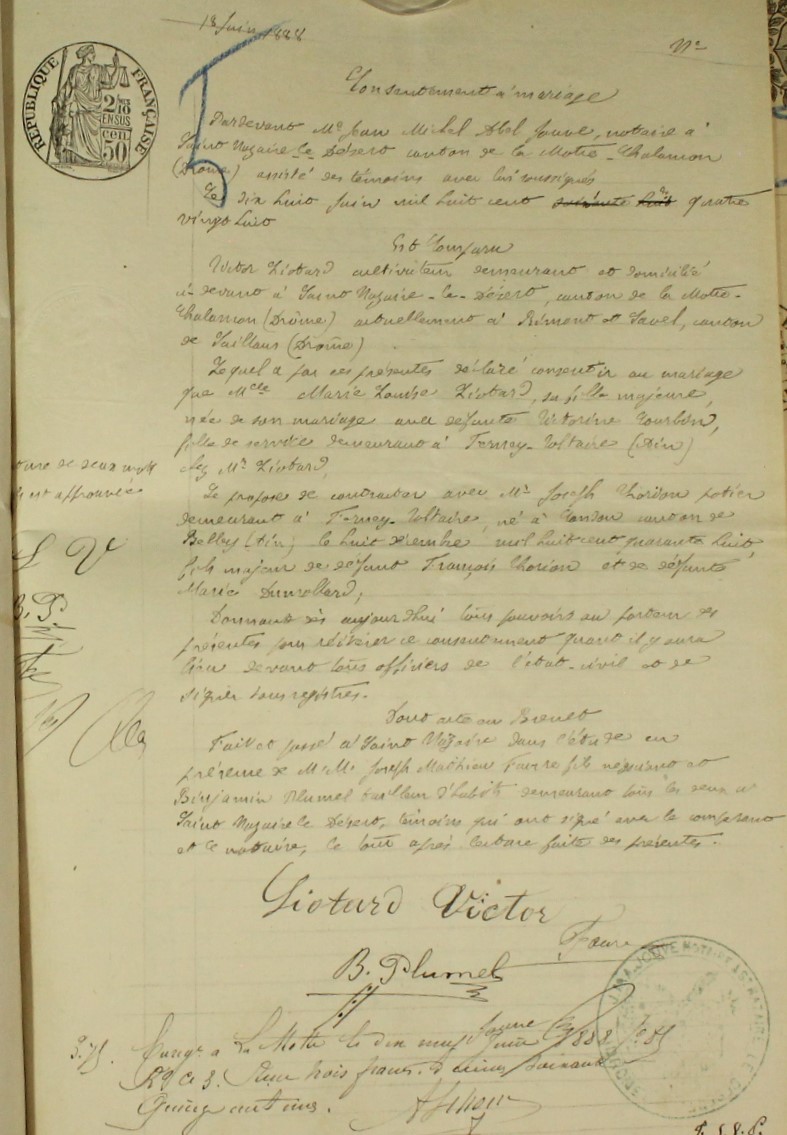 18 Juin 1888
Nº
RÉPUBLIQUE FRANÇAISE
2/10
EN SUS
50 cen
Consentement à mariage
Pardevant Me Jean Michel Abel Jouve, notaire à
Saint Nazaire-le-Désert canton de la Motte-Chalancon
(Drôme) assisté des témoins avec lui soussignés
Le dix huit Juin mil huit cent quatre
vingt huit
Est Comparu
Victor Liotard cultivateur demeurant et domicilié
ci-devant à Saint Nazaire-le-Désert, canton de la Motte-
Chalancon (Drôme) actuellement à Rimont et Savel, canton
de Saillans (Drôme)
Lequel a par ces présentes déclaré consentir au mariage
que Melle Marie Louise Liotard, sa fille majeure,
née de son mariage avec défunte Victorine Courbin,
fille de service demeurant à Ferney-Voltaire (Ain)
chez Mr Liotard,
Se propose de contracter avec Mr Joseph Chorion potier
demeurant à Ferney-Voltaire, né à canton de
Belley (Ain) le huit mil huit cent quarante huit,
fils majeur de défunt François Chorion et de défunte
Marie
Donnant dès aujourd'hui tous pouvoirs au porteur des
présentes pour réitérer ce consentement quant il y aura
lieu devant tous officiers de l'état-civil et de
signer tous registres.
Dont acte en Brevet
Fait et passé à Saint Nazaire dans l'étude en
présence de M.M. Joseph Mathieu Faure fils négociant et
Benjamin Plumel tailleur d'habits demeurant tous les deux à
Saint Nazaire le Désert, témoins qui ont signé avec le comparant
et le notaire, le tout après lecture faite des présentes.
de deux mots
est approuvée
L V
B. P.
Liotard Victor
Faure
B. Plumel
3.75.
Enregé à La Motte le dix neuf Juin 1888 fo 85
Rº Cº 3. Reçu trois francs, décimes soixante
quinze centimes.